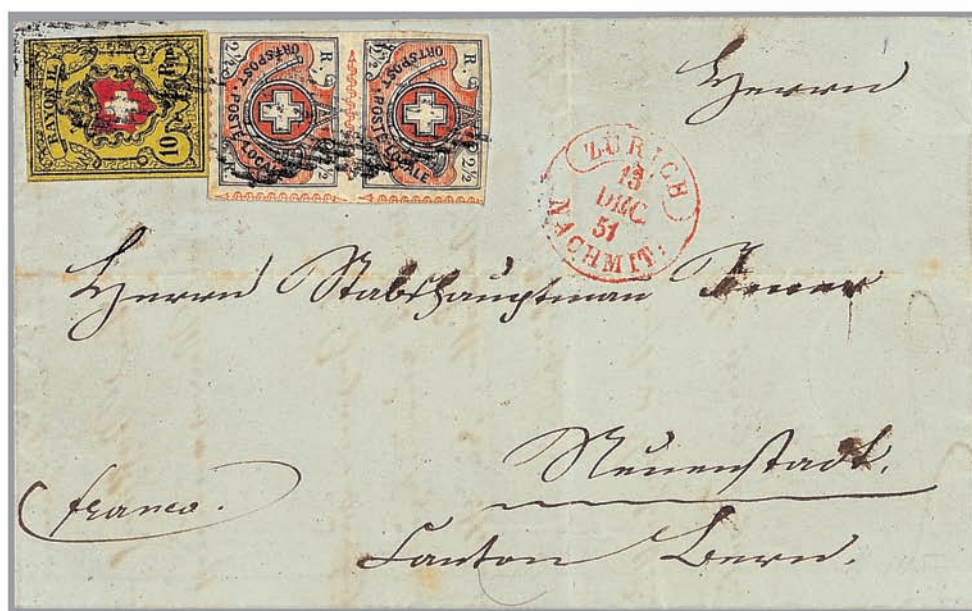 RAYON II.
10 Rp.
2½ R.
ORTSPOST. POSTE LOCALE
2½
2½ R.
ORTSPOST. POSTE LOCALE
2½
Herrn
ZÜRICH
13
DEC.
51
NACHMIT:
Herrn Stabshauptman
Neuenstadt.
franco.
Canton Bern.